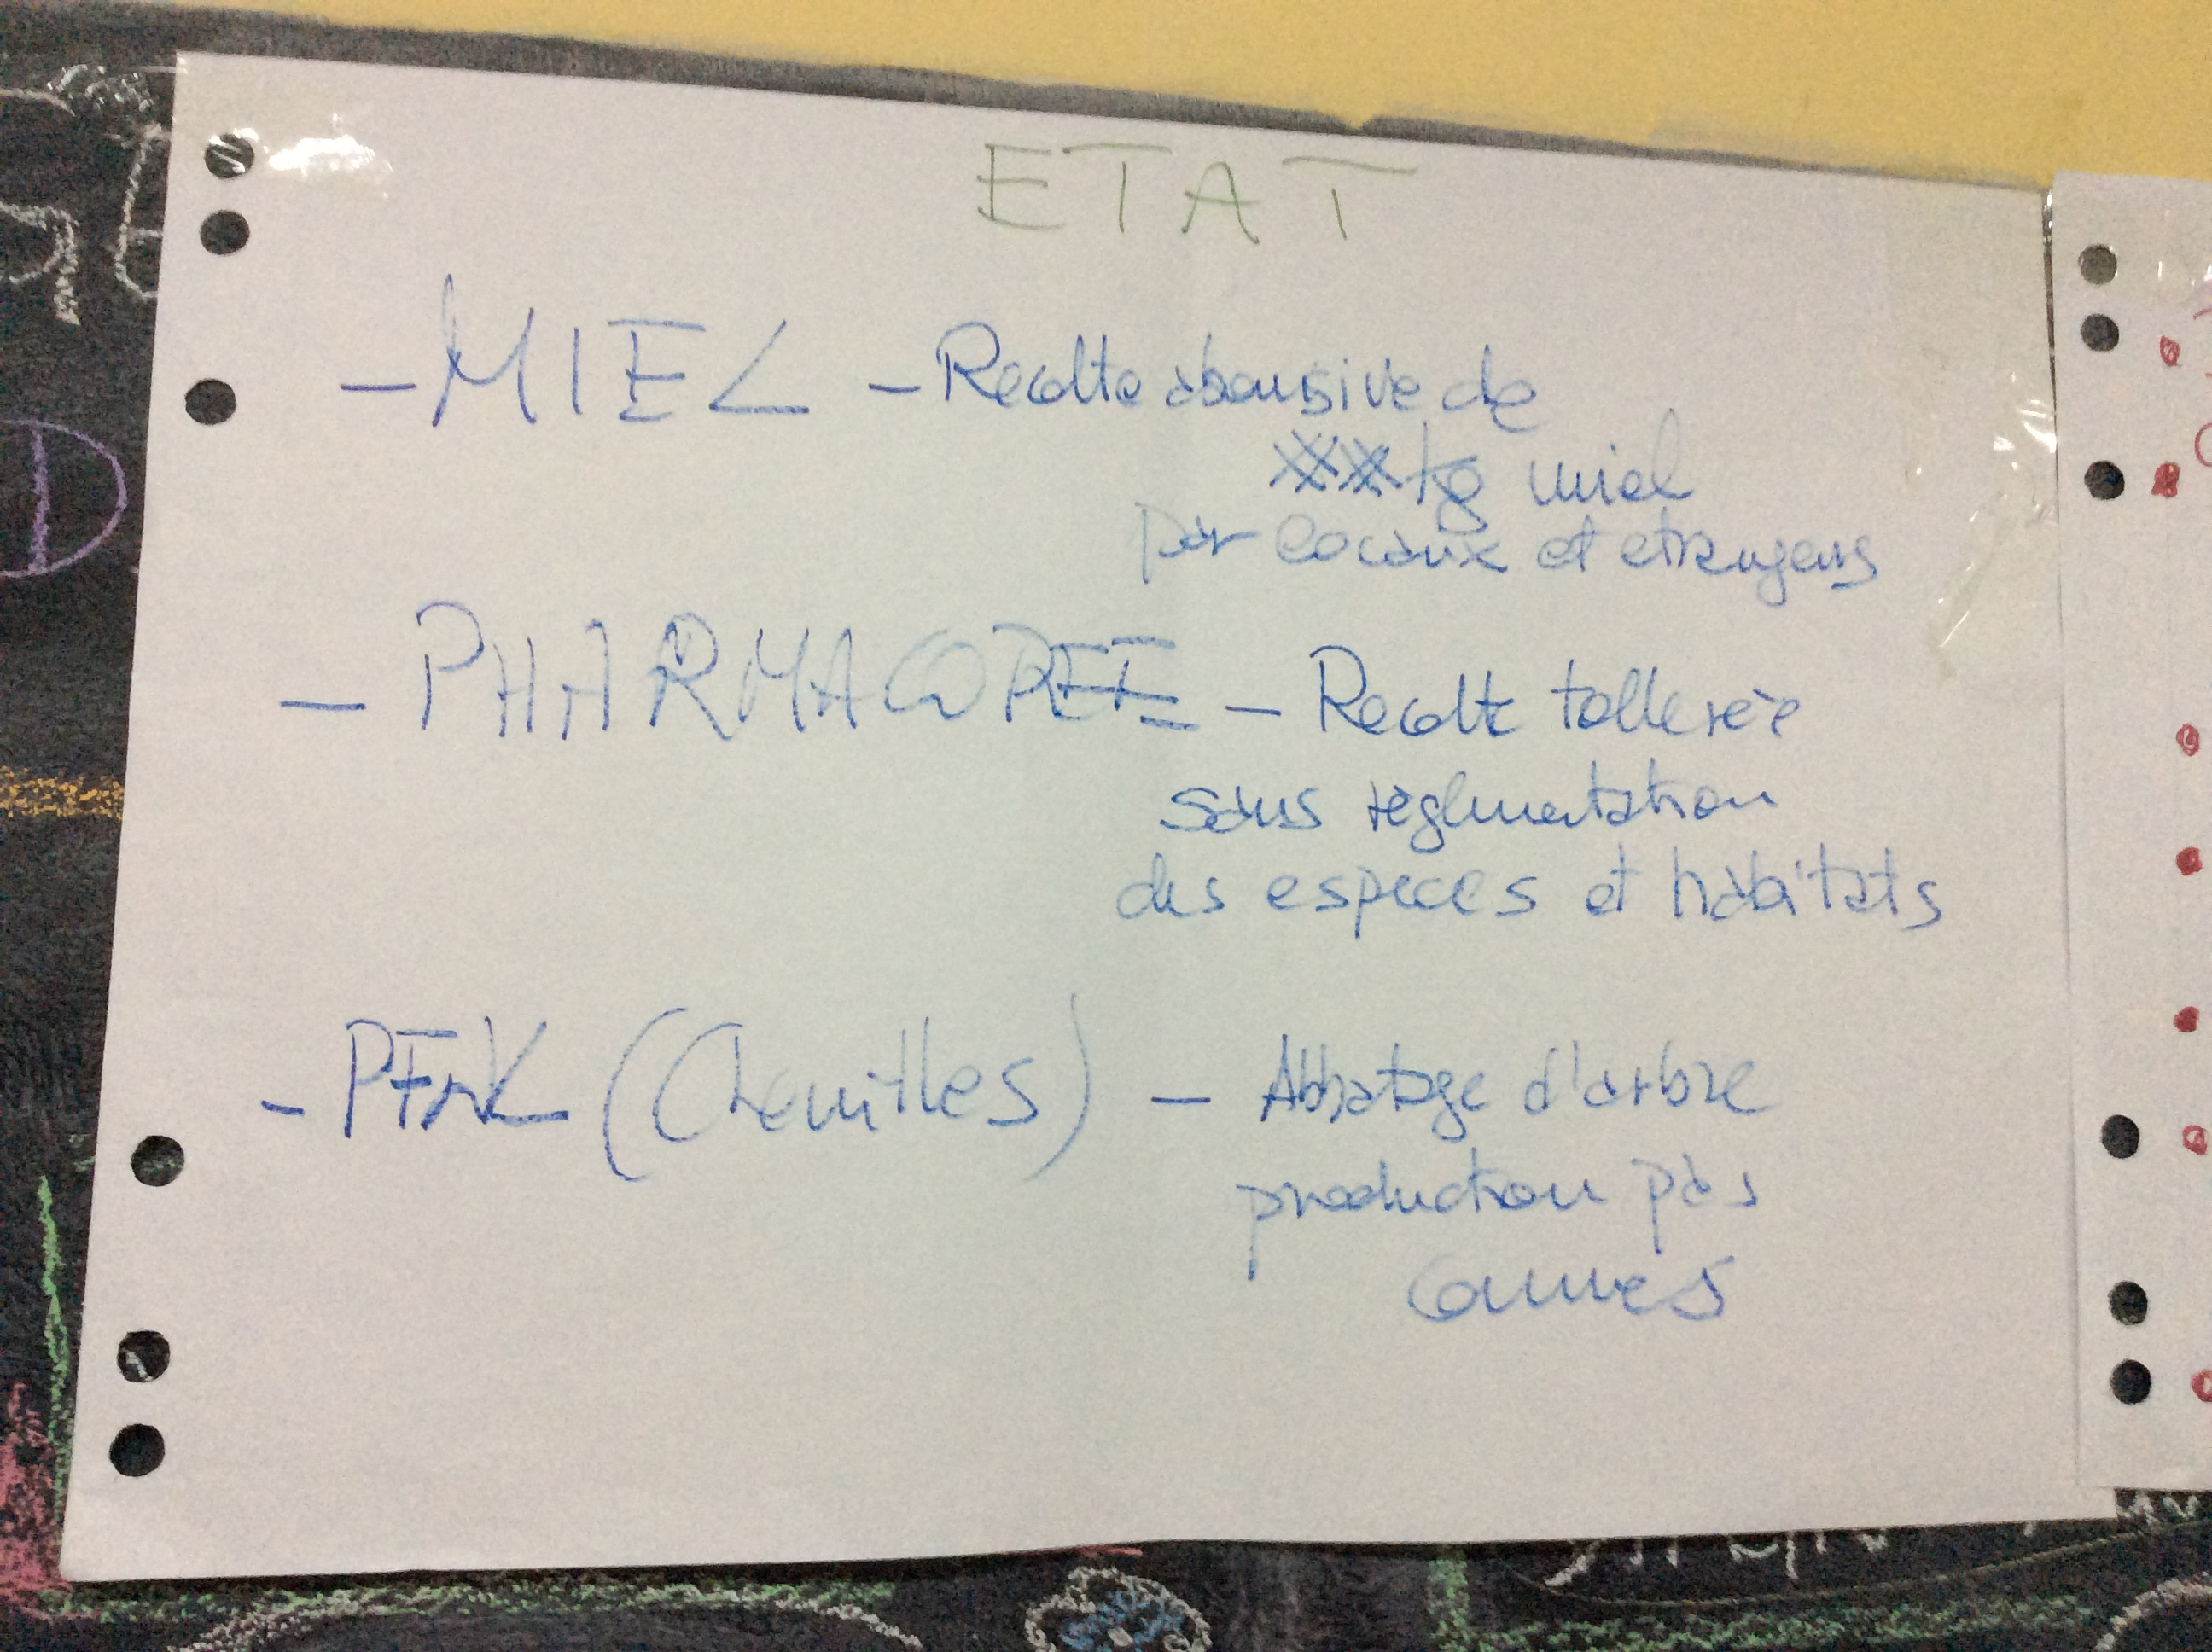 ETAT
- MIEL - Recolte abousive de
miel
par locaux et etrangers
- PHARMACOPEE - Recolte tollereè
sous règlmentation
des especes et habitats
- PFNL (Chenilles) - Abbatage d'arbre
production pas
connues
D